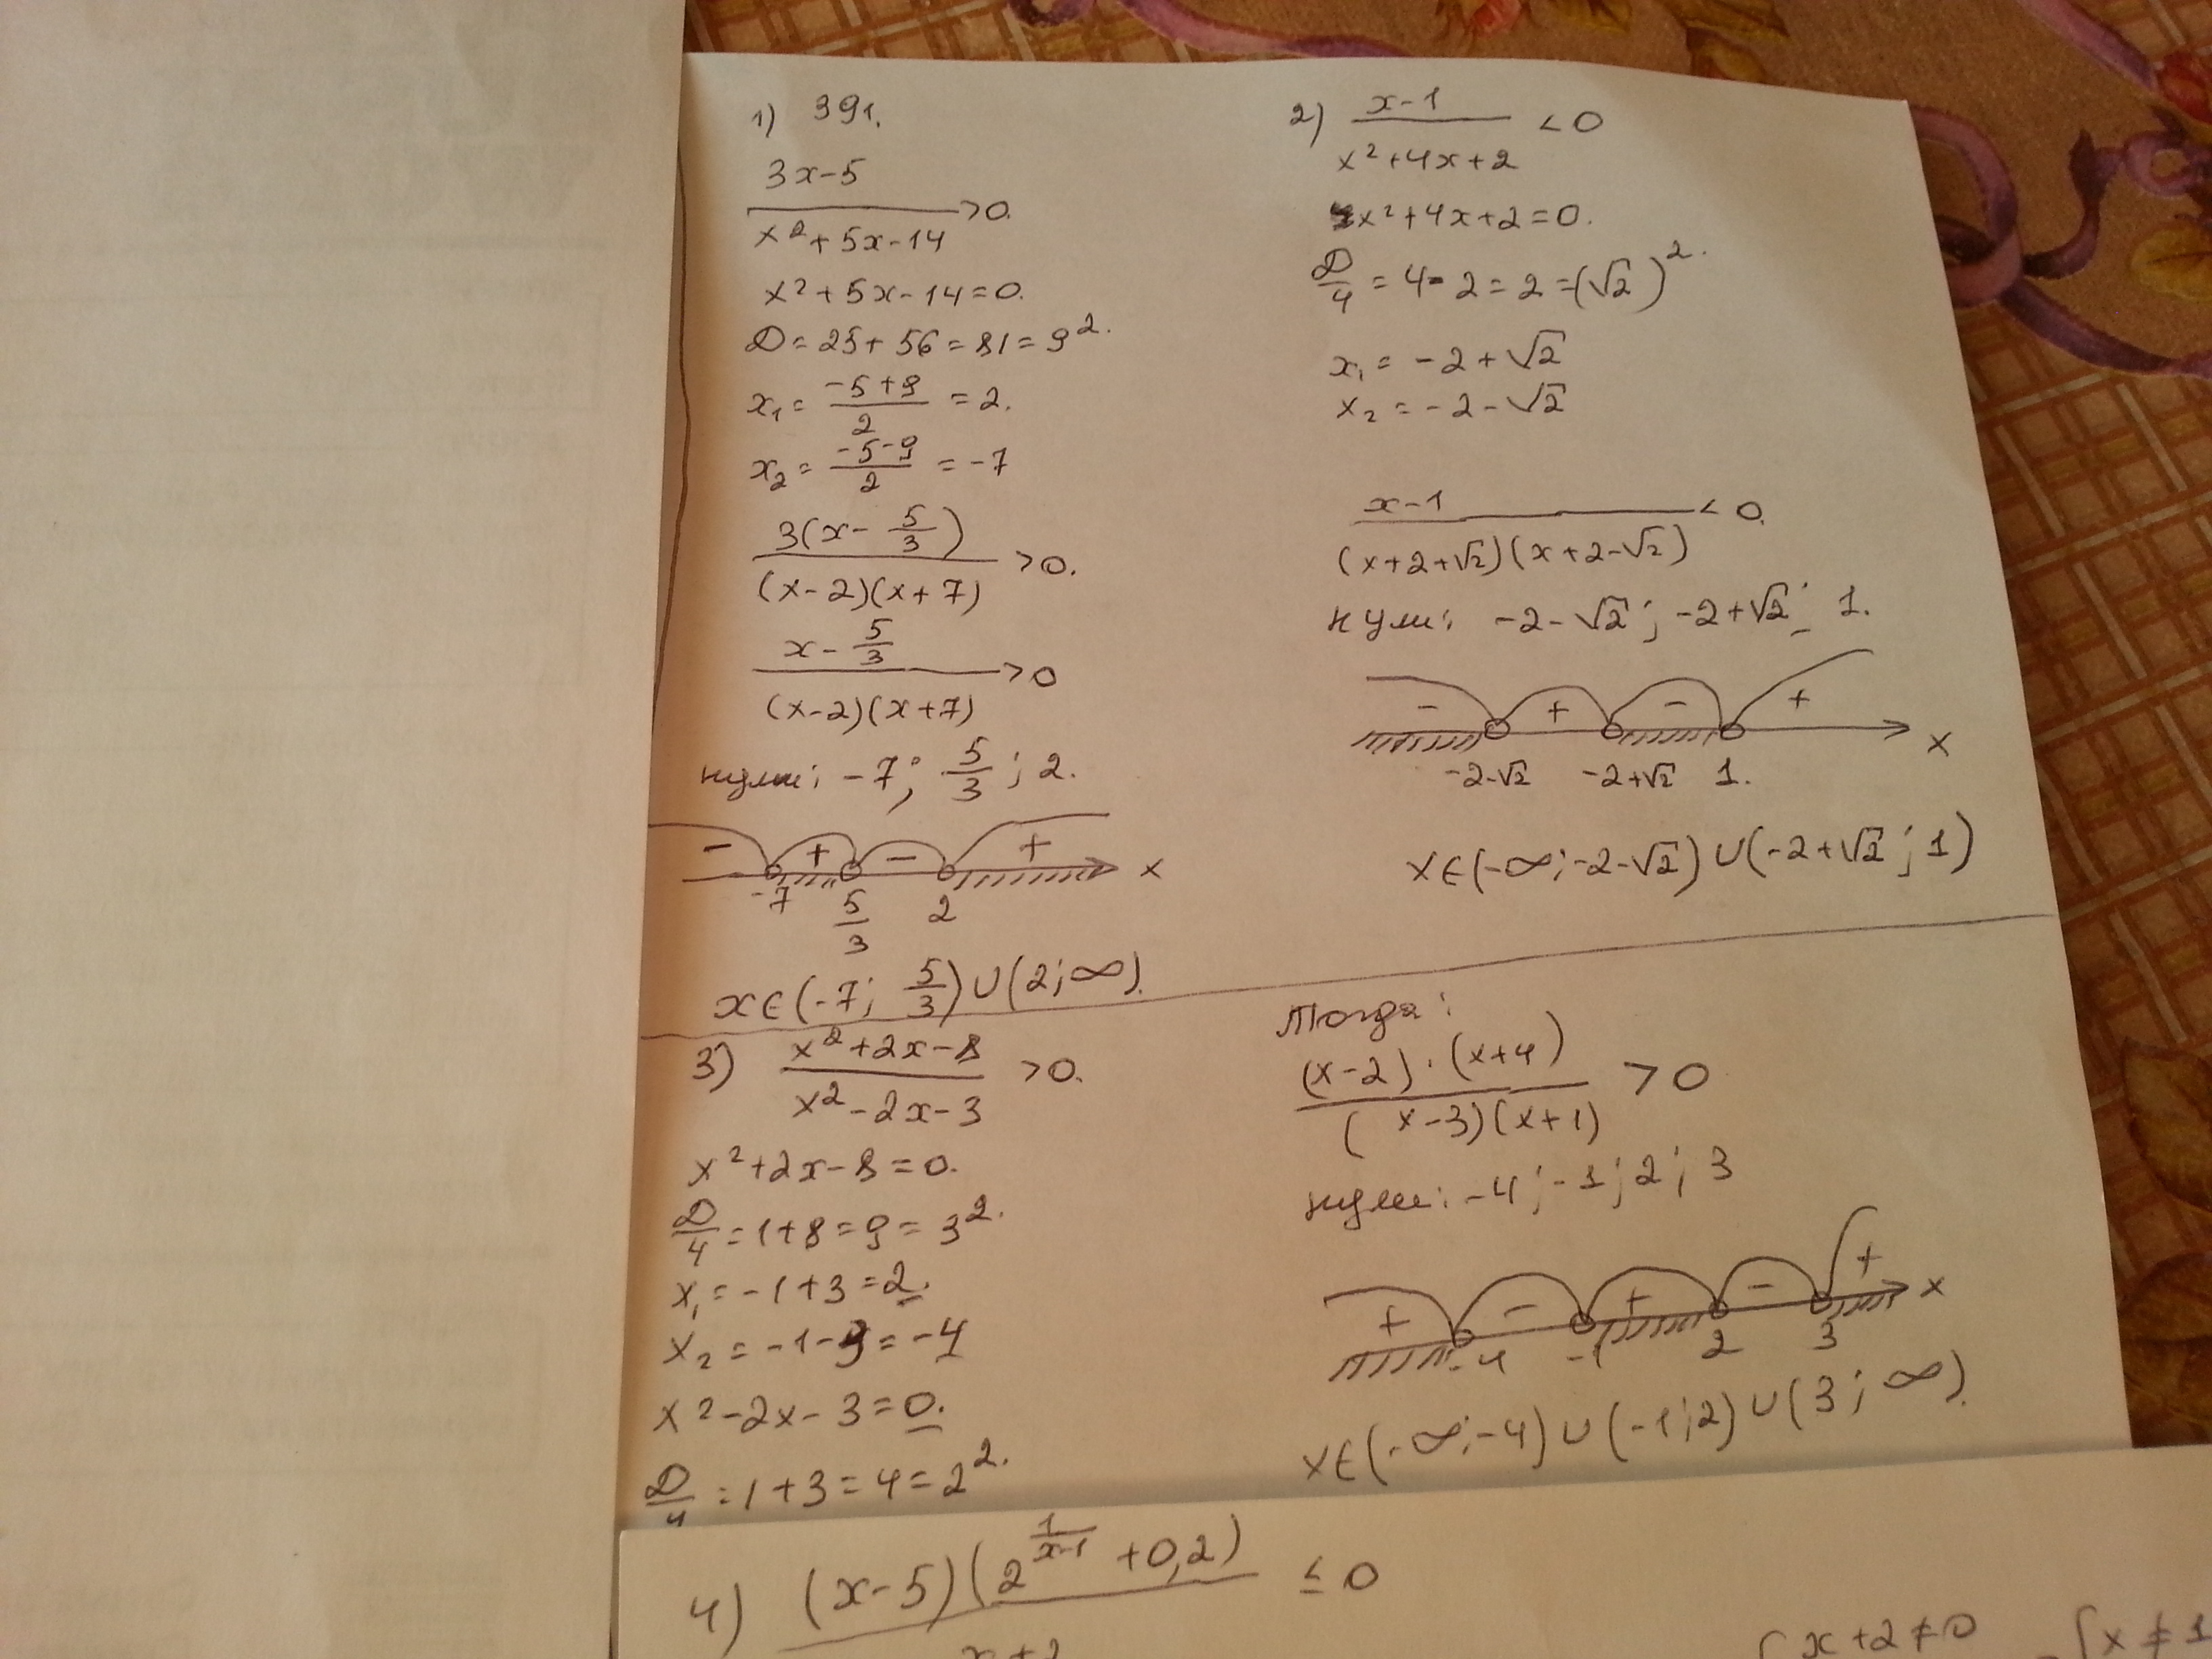 1) 391.
3x-5
/ x²+5x-14 >0.
x²+5x-14=0.
D=25+56=81=9².
x₁= (-5+9)/2 =2.
x₂= (-5-9)/2 =-7
3(x-5/3) / (x-2)(x+7) >0.
x-5/3 / (x-2)(x+7) >0
нули: -7; 5/3; 2.
- + - + x
-7 5/3 2
x∈(-7; 5/3)∪(2;∞).
2) x-1 / x²+4x+2 <0
x²+4x+2=0.
D/4 =4-2=2=(√2)².
x₁=-2+√2
x₂=-2-√2
x-1 / (x+2+√2)(x+2-√2) <0.
нули: -2-√2; -2+√2; 1.
- + - + x
-2-√2 -2+√2 1.
x∈(-∞;-2-√2)∪(-2+√2;1)
3) x²+2x-8 / x²-2x-3 >0.
x²+2x-8=0.
D/4 =1+8=9=3².
x₁=-1+3=2.
x₂=-1-3=-4
x²-2x-3=0.
D/4 =1+3=4=2².
Тогда:
(x-2)·(x+4) / (x-3)(x+1) >0
нули: -4;-1;2;3
+ - + - + x
-4 -1 2 3
x∈(-∞;-4)∪(-1;2)∪(3;∞).
4) (x-5)(2^(1/(x-1)) +0,2) ≤0
{x+2≠0 {x≠1